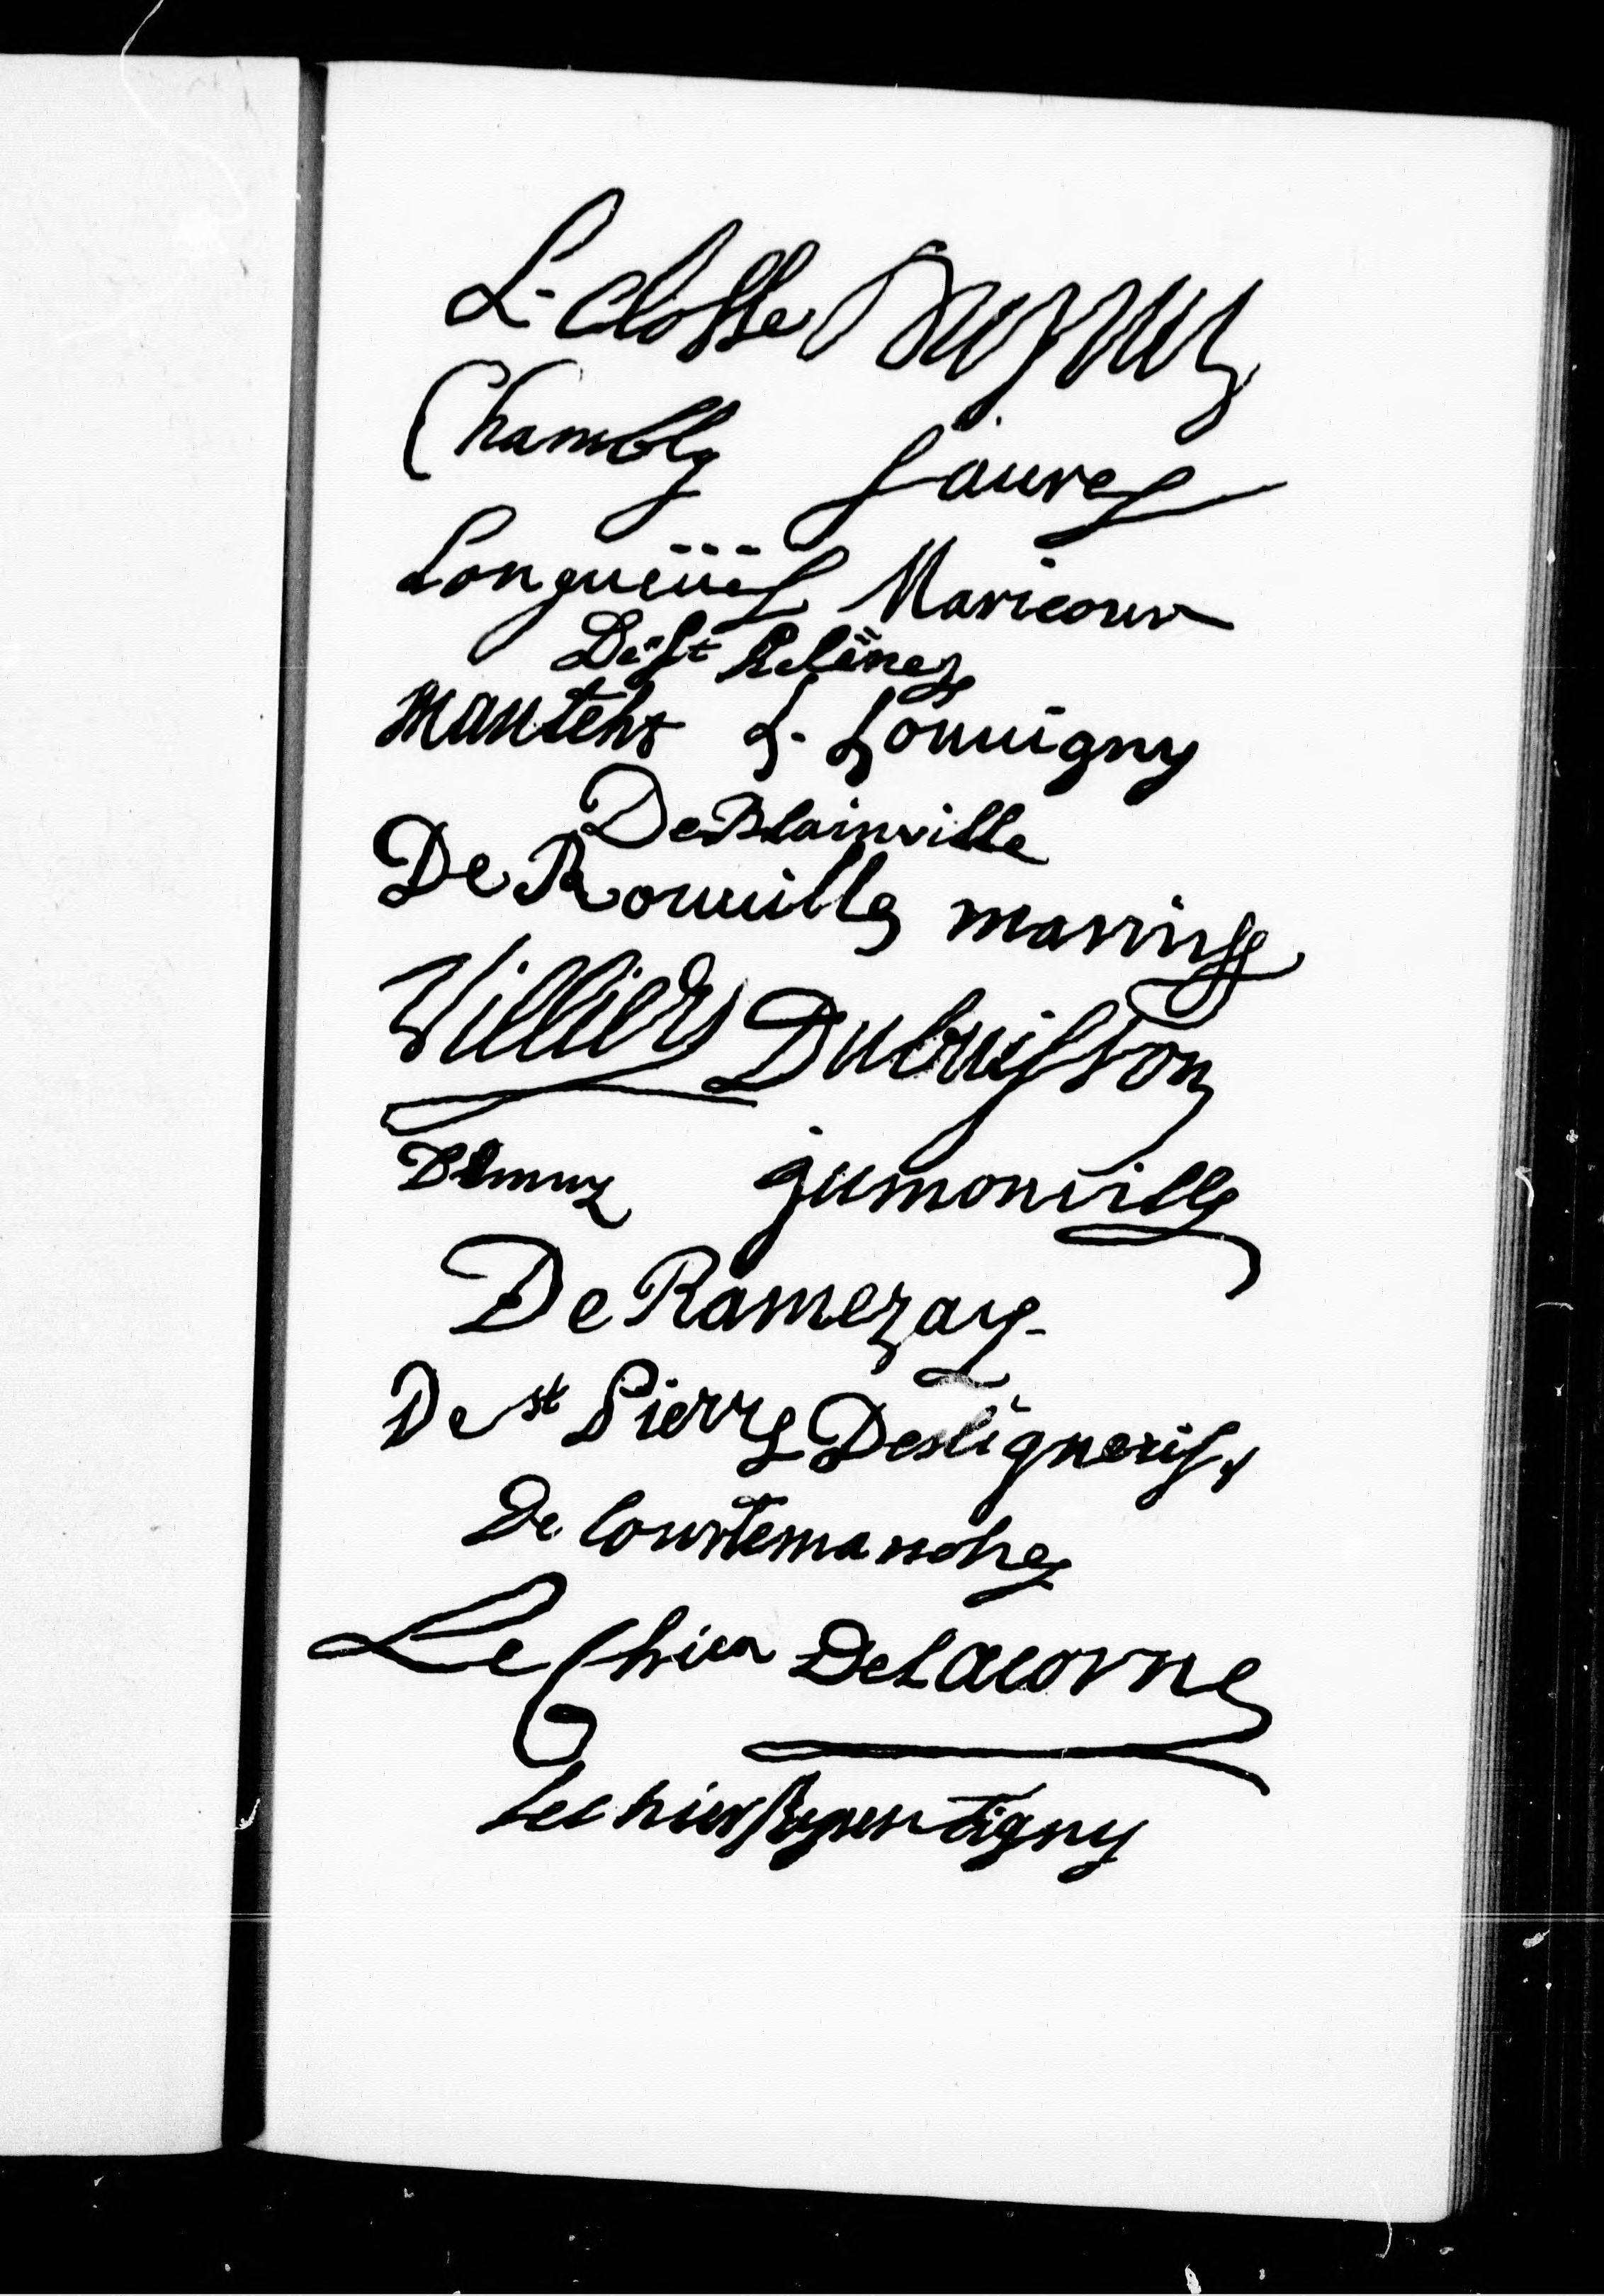 L. Closse Dugué
Chambly Saurel
Longueüil Maricour
De St helene
Manteht L. Louuigny
DeBlainville
De Rouuille marin
Villiers Dubuisson
Demuy jumonville
De Ramezay
De st Pierre Desligneris
De Courtemanche
Le Chier DeLacorne
Lechier Repentigny